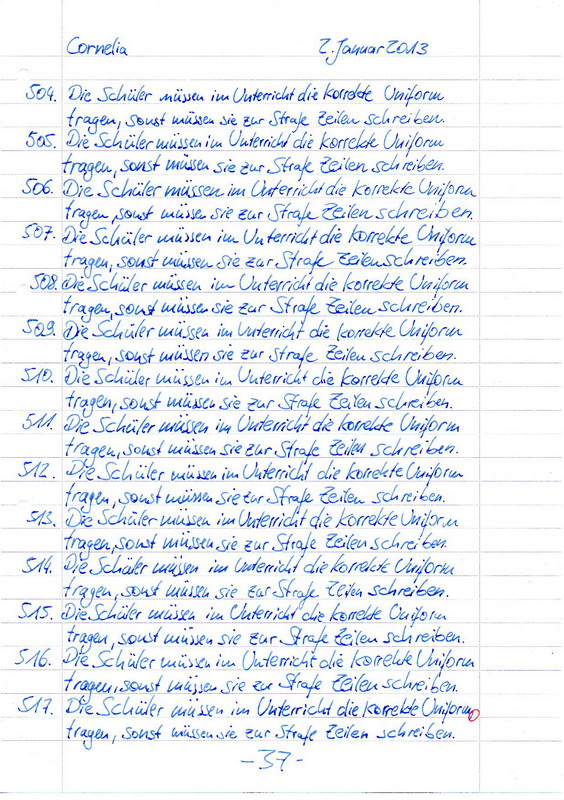 Cornelia 2. Januar 2013
504. Die Schüler müssen im Unterricht die korrekte Uniform
tragen, sonst müssen sie zur Strafe Zeilen schreiben.
505. Die Schüler müssen im Unterricht die korrekte Uniform
tragen, sonst müssen sie zur Strafe Zeilen schreiben.
506. Die Schüler müssen im Unterricht die korrekte Uniform
tragen, sonst müssen sie zur Strafe Zeilen schreiben.
507. Die Schüler müssen im Unterricht die korrekte Uniform
tragen, sonst müssen sie zur Strafe Zeilen schreiben.
508. Die Schüler müssen im Unterricht die korrekte Uniform
tragen, sonst müssen sie zur Strafe Zeilen schreiben.
509. Die Schüler müssen im Unterricht die korrekte Uniform
tragen, sonst müssen sie zur Strafe Zeilen schreiben.
510. Die Schüler müssen im Unterricht die korrekte Uniform
tragen, sonst müssen sie zur Strafe Zeilen schreiben.
511. Die Schüler müssen im Unterricht die korrekte Uniform
tragen, sonst müssen sie zur Strafe Zeilen schreiben.
512. Die Schüler müssen im Unterricht die korrekte Uniform
tragen, sonst müssen sie zur Strafe Zeilen schreiben.
513. Die Schüler müssen im Unterricht die korrekte Uniform
tragen, sonst müssen sie zur Strafe Zeilen schreiben.
514. Die Schüler müssen im Unterricht die korrekte Uniform
tragen, sonst müssen sie zur Strafe Zeilen schreiben.
515. Die Schüler müssen im Unterricht die korrekte Uniform
tragen, sonst müssen sie zur Strafe Zeilen schreiben.
516. Die Schüler müssen im Unterricht die korrekte Uniform
tragen, sonst müssen sie zur Strafe Zeilen schreiben.
517. Die Schüler müssen im Unterricht die korrekte Uniform
tragen, sonst müssen sie zur Strafe Zeilen schreiben.
-37-